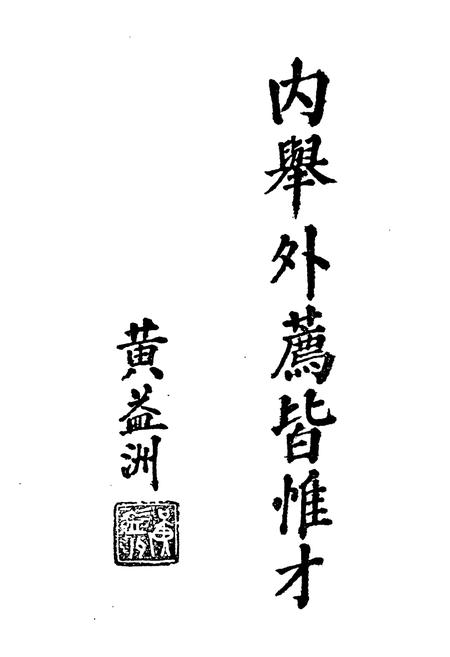 內舉外薦皆惟才
黄益洲